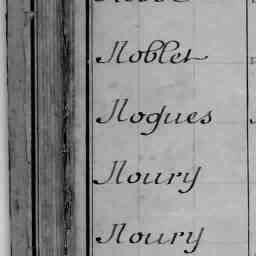 Noblet
Nogues
Noury
Noury